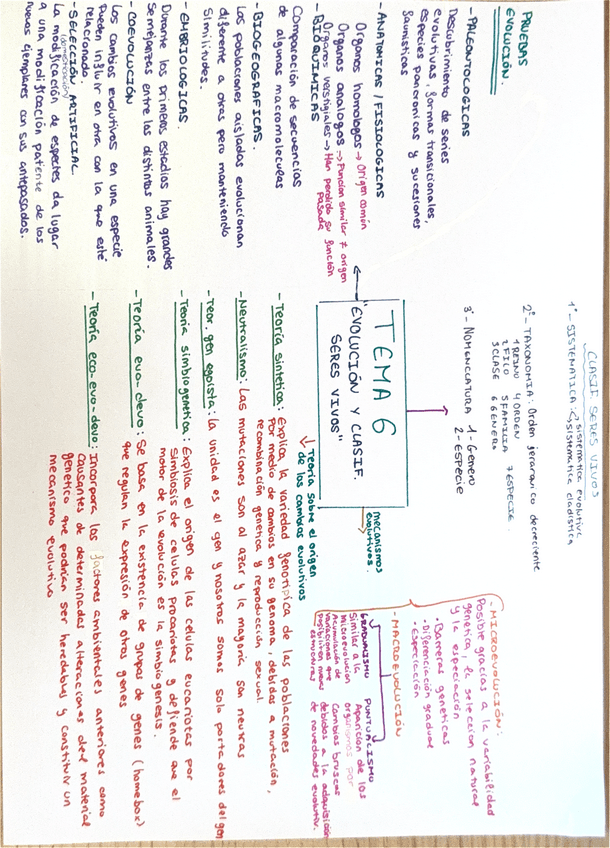 PRUEBAS
EVOLUCIÓN.
-PALEONTOLOGICAS
Descubrimiento de series
evolutivas, formas transicionales,
especies pancronicas y sucesiones
faunisticas
-ANATOMICAS / FISIOLOGICAS
Organos homologos → Origen común
Organos analogos → Funcion similar ≠ origen
Organos vestigiales → Han perdido su función
pasada
-BIOQUIMICAS
Comparación de secuencias
de algunas macromoleculas
-BIOGEOGRAFICAS.
Las poblaciones aisladas evolucionan
diferente a otras pero manteniendo
similitudes.
-EMBRIOLOGICAS.
Durante los primeros estadios hay grandes
semejanzas entre las distintas animales.
-COEVOLUCIÓN
Los cambios evolutivos en una especie
pueden influir en otra con la que esté
relacionada
-SELECCIÓN ARTIFICIAL.
(domesticación)
La modificación de especies da lugar
a una modificación patente de los
nuevos ejemplares con sus antepasados.
TEMA 6
"EVOLUCIÓN Y CLASIF.
SERES VIVOS"
CLASIF SERES VIVOS
1º- SISTEMATICA: sistematica evolutiva
sistematica cladistica
2º- TAXONOMIA: Orden jerarquico decreciente
1 REINO 4 ORDEN 7 ESPECIE.
2 FILO 5 FAMILIA
3 CLASE 6 GENERO
3º- NOMENCLATURA 1- Genero
2- ESPECIE
mecanismos
evolutivos.
-MICROEVOLUCIÓN:
Posible gracias a la variabilidad
genetica, la seleccion natural
y la especiación
- Barreras geneticas
- Diferenciación gradual
- Especiación
-MACROEVOLUCIÓN
GRADUALISMO
Similar a la
microevolucion
Acumulación de
variaciones que
posibiliten nuevas
estructuras
PUNTUALISMO
Aparición de los
organismos por
Cambios bruscos
debidos a la adquisición
de novedades evolutiv.
↓ Teoría sobre el origen
de los cambios evolutivos
-Teoría sintética: Explica la variedad genotípica de las poblaciones
por medio de cambios en su genoma, debidas a mutación,
recombinación genetica y reproducción sexual.
-Neutralismo: Las mutaciones son al azar y la mayoría son neutras
-Teor. gen egoista: la unidad es el gen y nosotros somos solo portadores del gen
-Teoría simbiogenetica: Explica el origen de las celulas eucariotas por
simbiosis de celulas procariotas y defiende que el
motor de la evolución es la simbiogenesis.
-Teoría evo-devo: Se basa en la existencia de grupos de genes (homebox)
que regulan la expresión de otros genes
-Teoría eco-evo-devo: Incorpora los factores ambientales anteriores como
causantes de determinadas alteraciones del material
genetico que podrian ser heredables y constituir un
mecanismo evolutivo